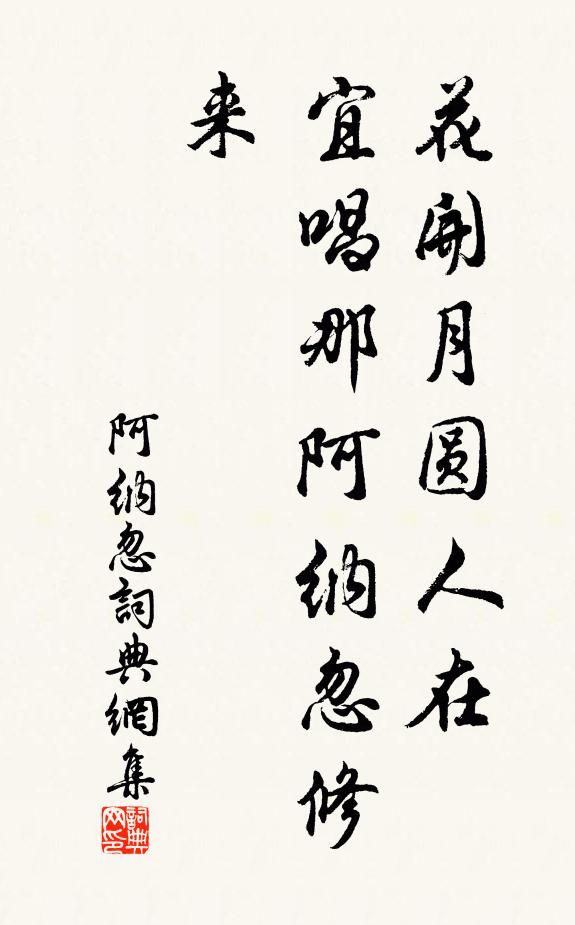 花開月圓人在
宜唱那阿納忽修
来
阿納忽詞典網集
詞典网印